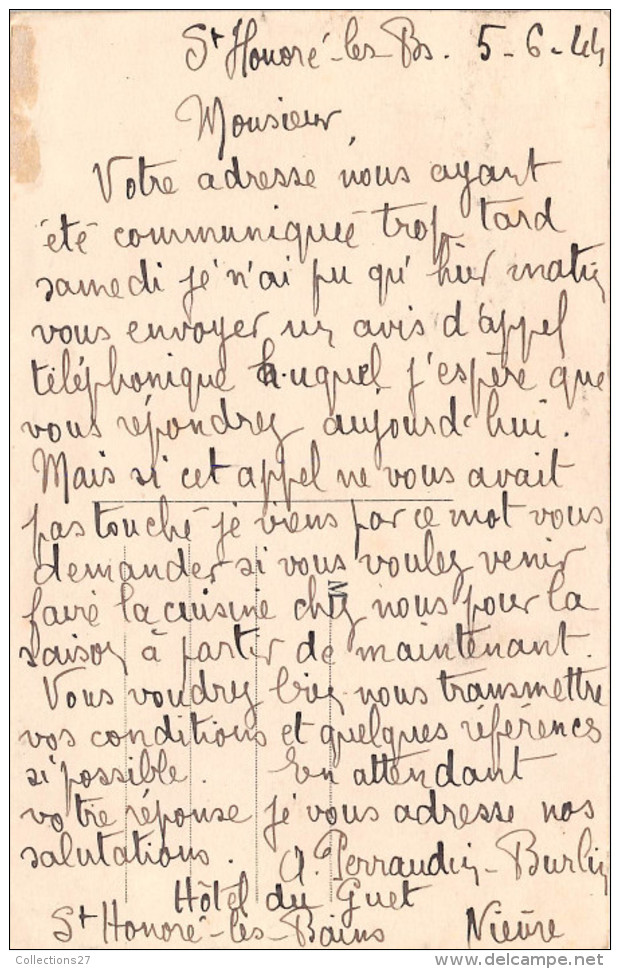 St Honoré-les-Bs. 5-6-44
Monsieur,
Votre adresse nous ayant
été communiquée trop tard
samedi je n'ai pu qu'hier matin
vous envoyer un avis d'appel
téléphonique auquel j'espère que
vous répondrez aujourd'hui.
Mais si cet appel ne vous avait
pas touché je viens par ce mot vous
demander si vous voulez venir
faire la cuisine chez nous pour la
saison à partir de maintenant.
Vous voudrez bien nous transmettre
vos conditions et quelques références
si possible. En attendant
votre réponse je vous adresse nos
salutations. A. Perraudin-Burlin
Hôtel du Guet
St Honoré-les-Bains Nièvre
Collections27